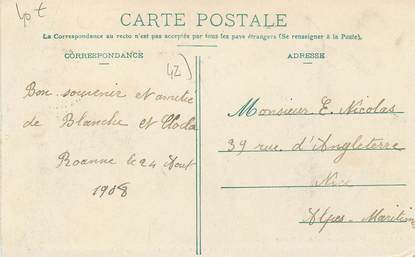 40t
CARTE POSTALE
La Correspondance au recto n'est pas acceptée par tous les pays étrangers (Se renseigner à la Poste).
CORRESPONDANCE
ADRESSE
42)
Bon souvenir et amitié
de Blanche et
Roanne le 24 Aout
1908
Monsieur E. Nicolas
39 rue d'Angleterre
Nice
Alpes-Maritim